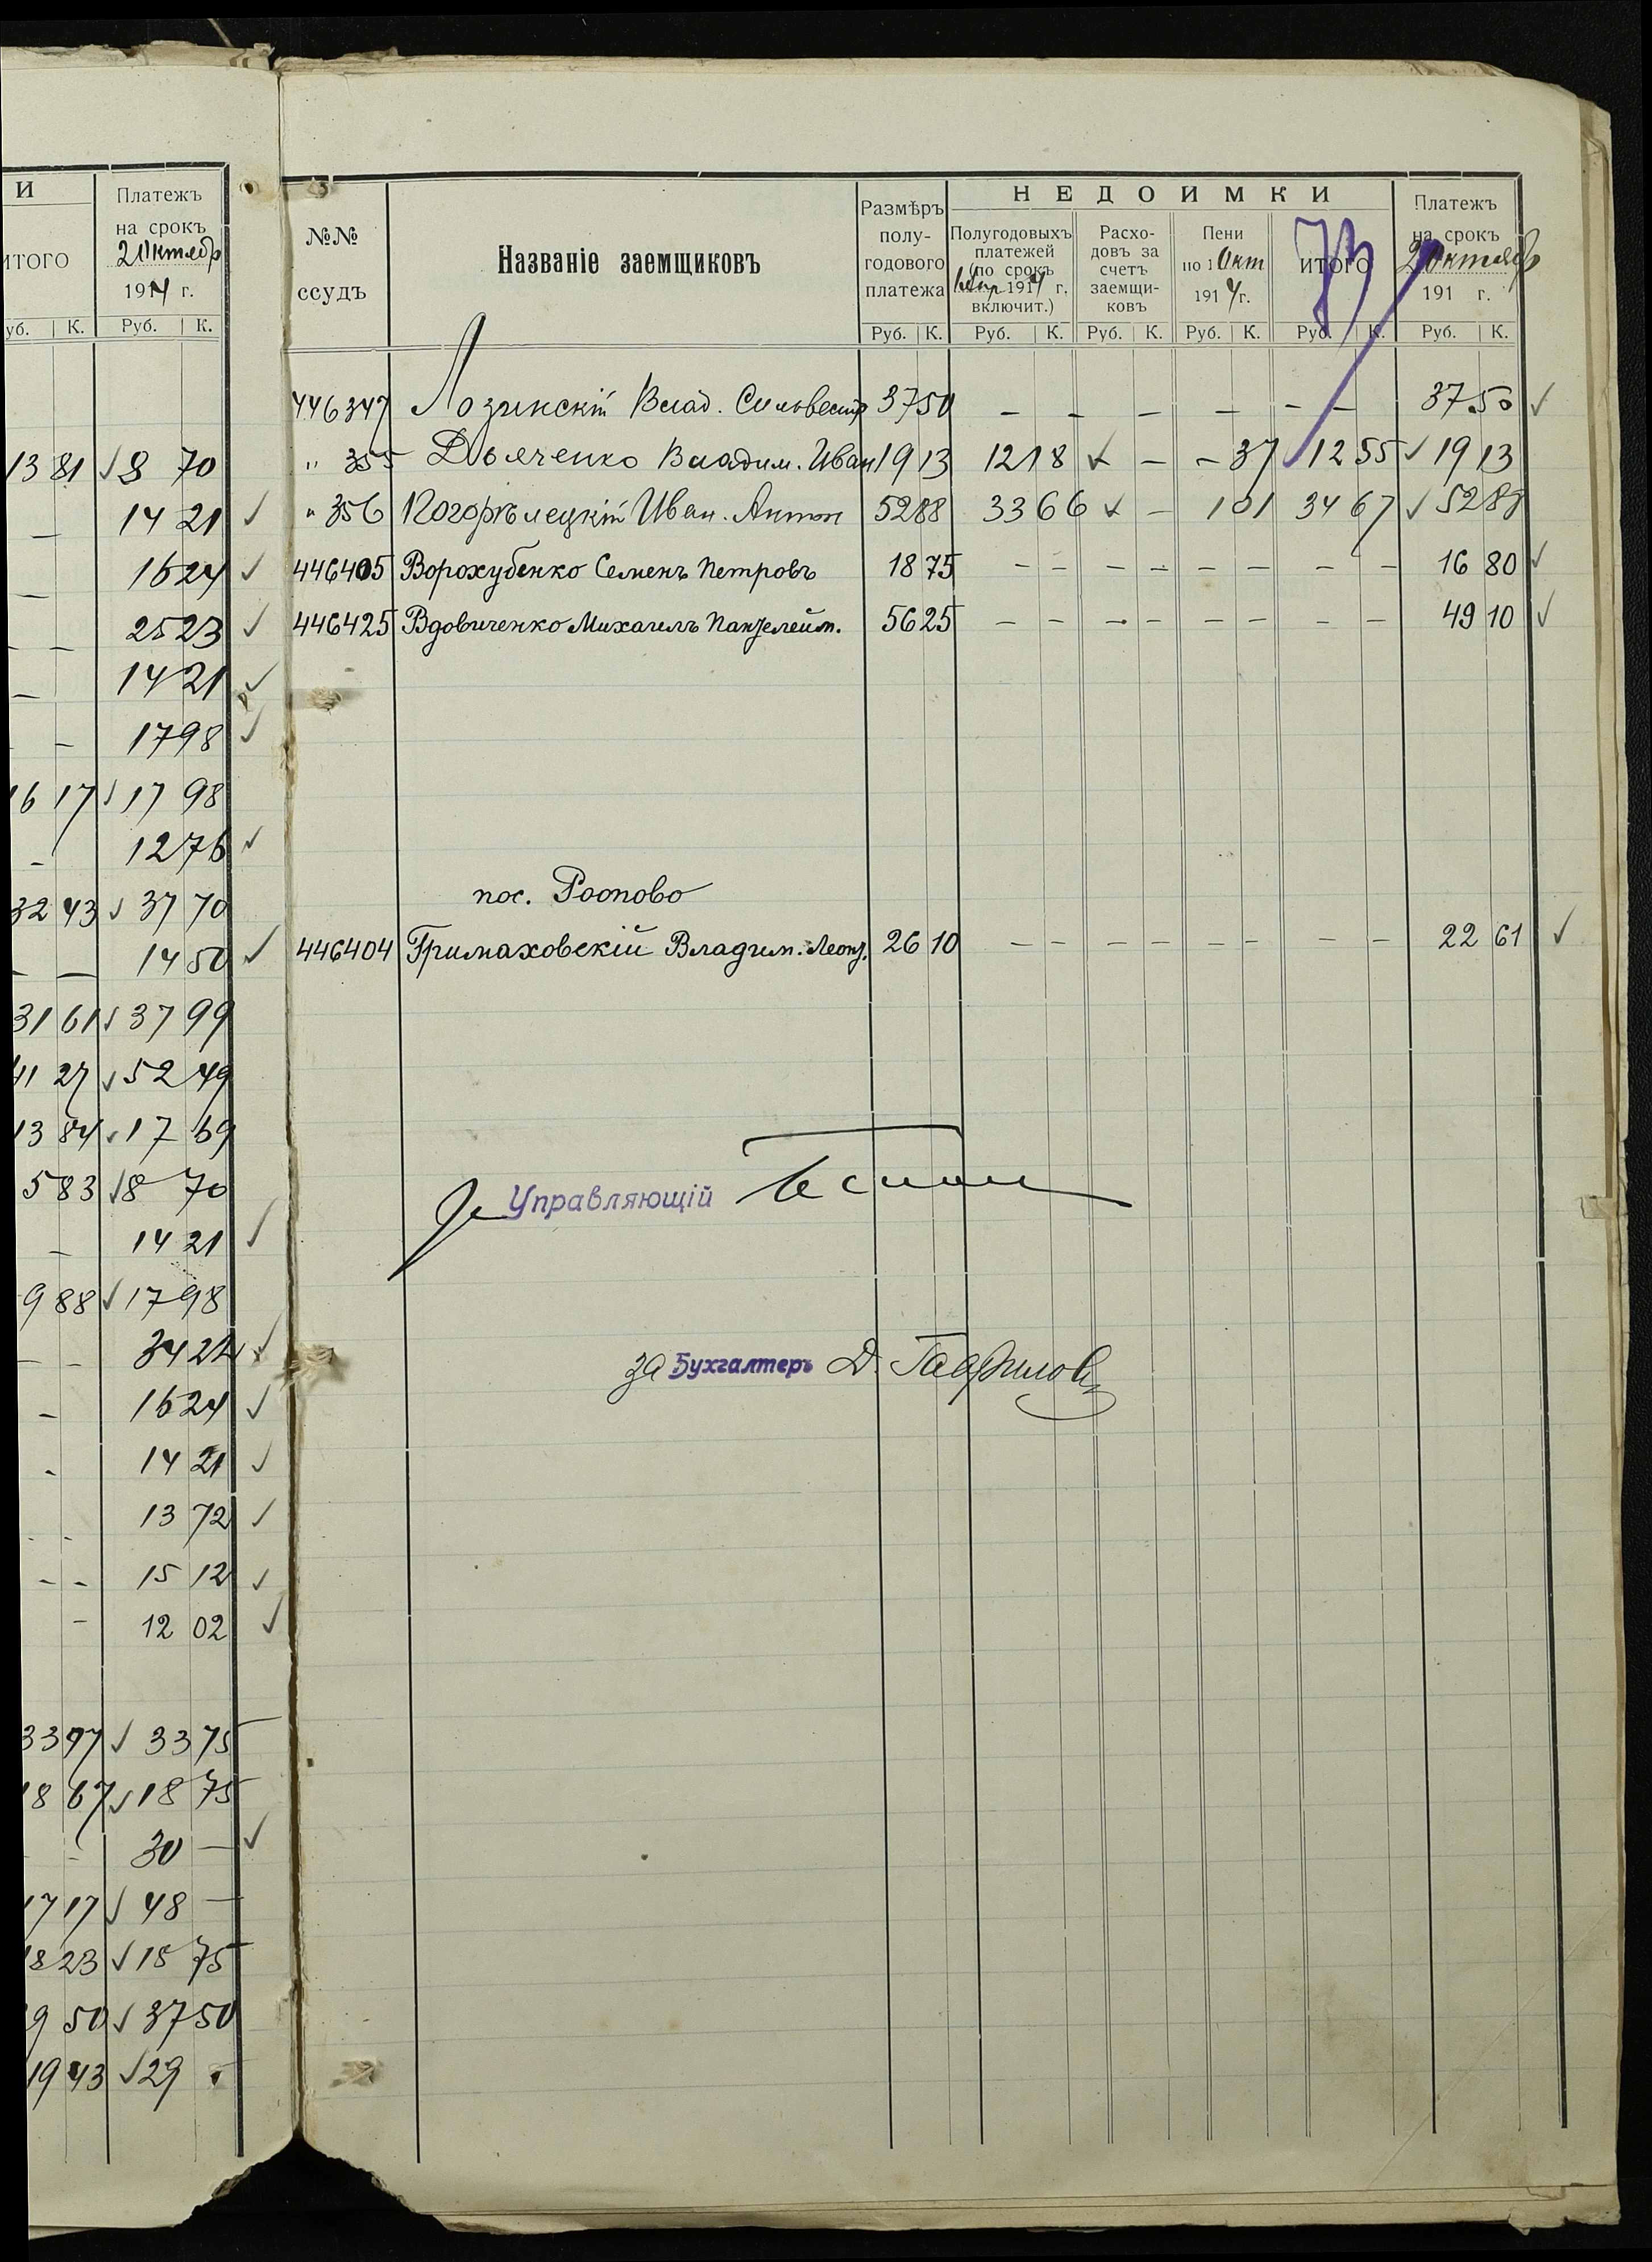 И
Платежъ
на срокъ
2 Октябр
1914 г.
ИТОГО
уб. К. Руб. К.
13 81 ✓ 8 70
— 14 21 ✓
— 16 24 ✓
— — 25 23 ✓
— 14 21 ✓
- — 17 98 ✓
16 17 ✓ 17 98
- 12 76 ✓
32 43 ✓ 37 70
— — 14 50 ✓
31 61 ✓ 37 99
41 27 ✓ 52 49
13 84 ✓ 17 69
5 83 ✓ 8 70
— 14 21 ✓
9 88 ✓ 17 98
— - 34 22 ✓
— 16 24 ✓
- 14 21 ✓
- - 13 72 ✓
- - 15 12 ✓
- 12 02 ✓
33 97 ✓ 33 75
18 67 ✓ 18 75
- - 30 — ✓
17 17 ✓ 48 —
18 23 ✓ 18 75
9 50 ✓ 37 50
19 43 ✓ 29
№№
ссудъ
Названіе заемщиковъ
Размѣръ
полу-
годового
платежа
НЕДОИМКИ
Полугодовыхъ
платежей
(по срокъ
1914 г.
включит.)
Расхо-
довъ за
счетъ
заемщи-
ковъ
Пени
по 1 Окт
1914 г.
ИТОГО
73
Платежъ
на срокъ
2 Октябр
191 г.
Руб. К. Руб. К. Руб. К. Руб. К. Руб. К. Руб. К.
446347 Лозинскій Влад. Сильвестр 37 50 — - — — - — 37 50 ✓
" 355 Дьяченко Владим. Иван 19 13 12 18 ✓ — - 37 ✓ 12 55 ✓ 19 13
" 356 Погорѣлецкій Иван. Антон 52 88 33 66 ✓ — 1 01 34 67 ✓ 52 88
446405 Ворохубенко Семенъ Петровъ 18 75 - - - - - - - - 16 80 ✓
446425 Вдовиченко Михаилъ Пантелейм. 56 25 - - - - - - - - 49 10 ✓
пос. Роопово
446404 Гримаховскій Владим. Леонт. 26 10 - - - - - - - - 22 61 ✓
За Управляющій
За Бухгалтеръ Д. Гаврилов